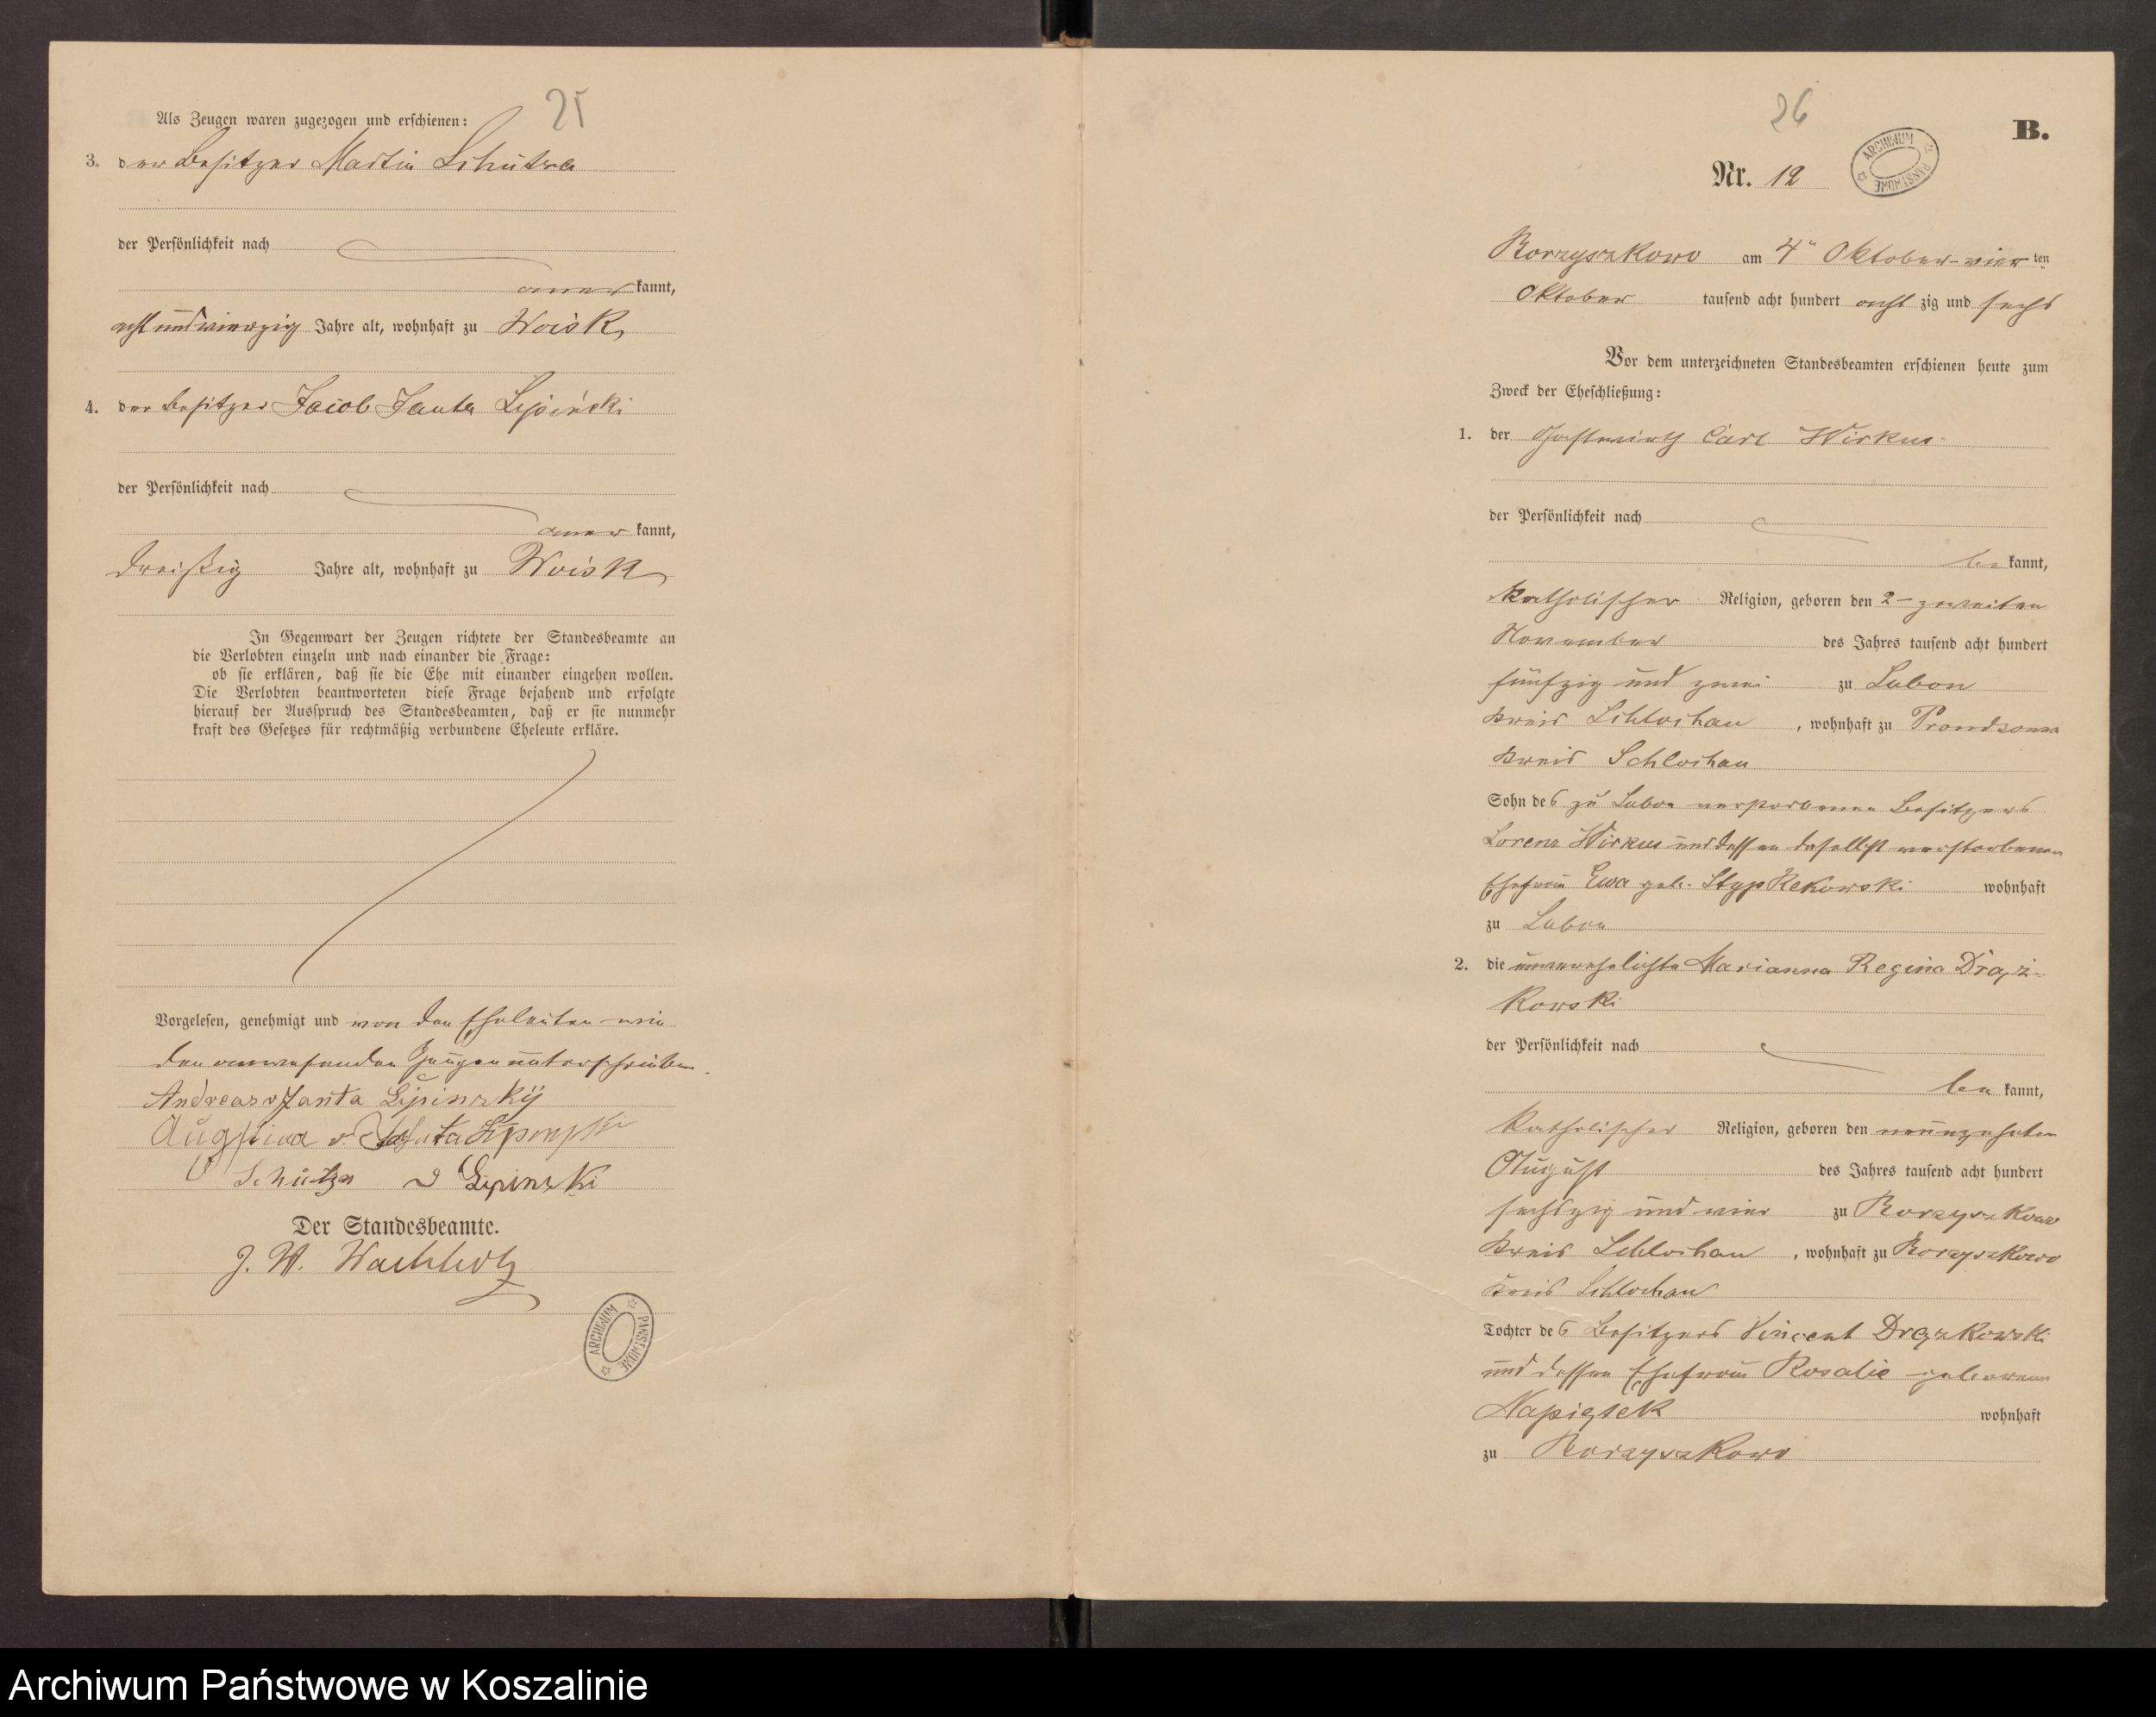 25
Als Zeugen waren zugezogen und erschienen:
3. der Besitzer Martin Schütza
der Persönlichkeit nach
aner kannt,
acht und vierzig Jahre alt, wohnhaft zu Woisk,
4. der Besitzer Jacob Janta Lipiński
der Persönlichkeit nach
aner kannt,
dreißig Jahre alt, wohnhaft zu Woisk
In Gegenwart der Zeugen richtete der Standesbeamte an
die Verlobten einzeln und nach einander die Frage:
ob sie erklären, daß sie die Ehe mit einander eingehen wollen.
Die Verlobten beantworteten diese Frage bejahend und erfolgte
hierauf der Ausspruch des Standesbeamten, daß er sie nunmehr
kraft des Gesetzes für rechtmäßig verbundene Eheleute erkläre.
Vorgelesen, genehmigt und von den Eheleuten wie
den anwesenden Zeugen unterschrieben.
Andreas v Janta Lipinskÿ
v. Janta
Schütza v Lipinski
Der Standesbeamte.
J. W. Wachholz
ARCHIWUM PAŃSTWOWE
26
B.
Nr. 12
ARCHIWUM PAŃSTWOWE
Borzyszkowo am 4 Oktober - vier ten
Oktober tausend acht hundert acht zig und sechs
Vor dem unterzeichneten Standesbeamten erschienen heute zum
Zweck der Eheschließung:
1. der Gastwirth Carl Wirkus
der Persönlichkeit nach
be kannt,
katholischer Religion, geboren den 2 - zweiten
November des Jahres tausend acht hundert
fünfzig und zwei zu Lubon
Kreis Schlochau, wohnhaft zu Prondzona
Kreis Schlochau
Sohn des zu Lubon verstorbenen Besitzers
Lorenz Wirkus und dessen daselbst verstorbenen
Ehefrau Ewa geb. Styp Rekowski wohnhaft
zu Lubon
2. die unverehelichte Marianna Regina Drąz-
kowski
der Persönlichkeit nach
be kannt,
katholischer Religion, geboren den neunzehnten
August des Jahres tausend acht hundert
sechszig und vier zu Borzyszkowo
Kreis Schlochau, wohnhaft zu Borzyszkowo
Kreis Schlochau
Tochter des Besitzers Vincent Drązkowski
und dessen Ehefrau Rosalie geborenen
Napiątek wohnhaft
zu Borzyszkowo
Archiwum Państwowe w Koszalinie